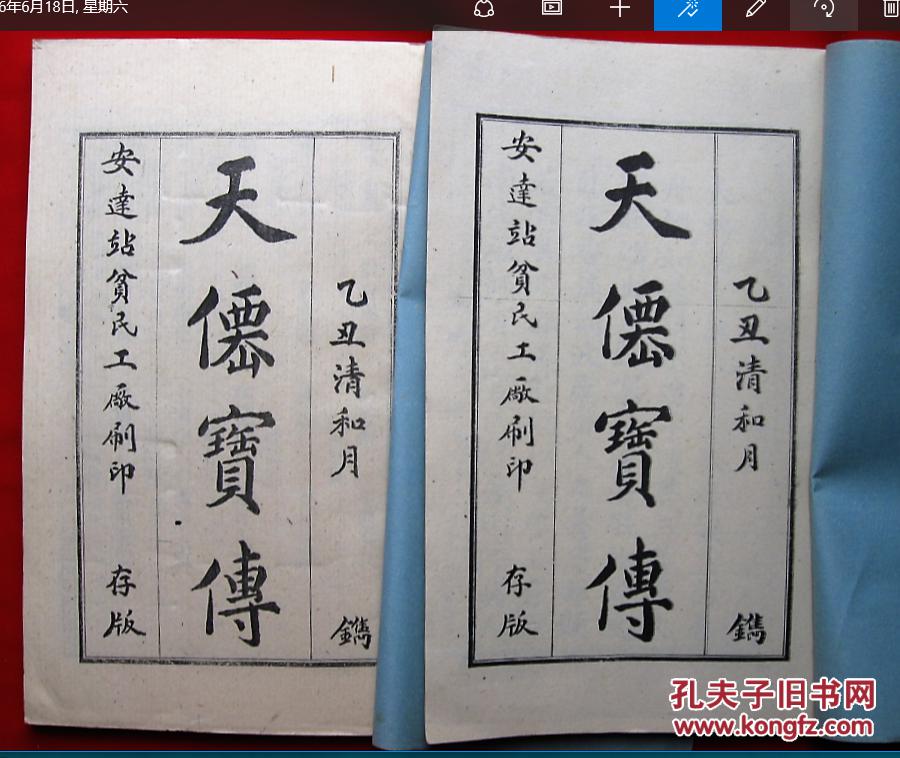 6年6月18日, 星期六
乙丑清和月 鐫
天僊寶傳
安達站貧民工廠刷印 存版
乙丑清和月 鐫
天僊寶傳
安達站貧民工廠刷印 存版
孔夫子旧书网
www.kongfz.com